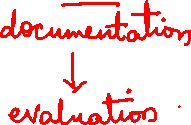 documentation
↓
evaluation